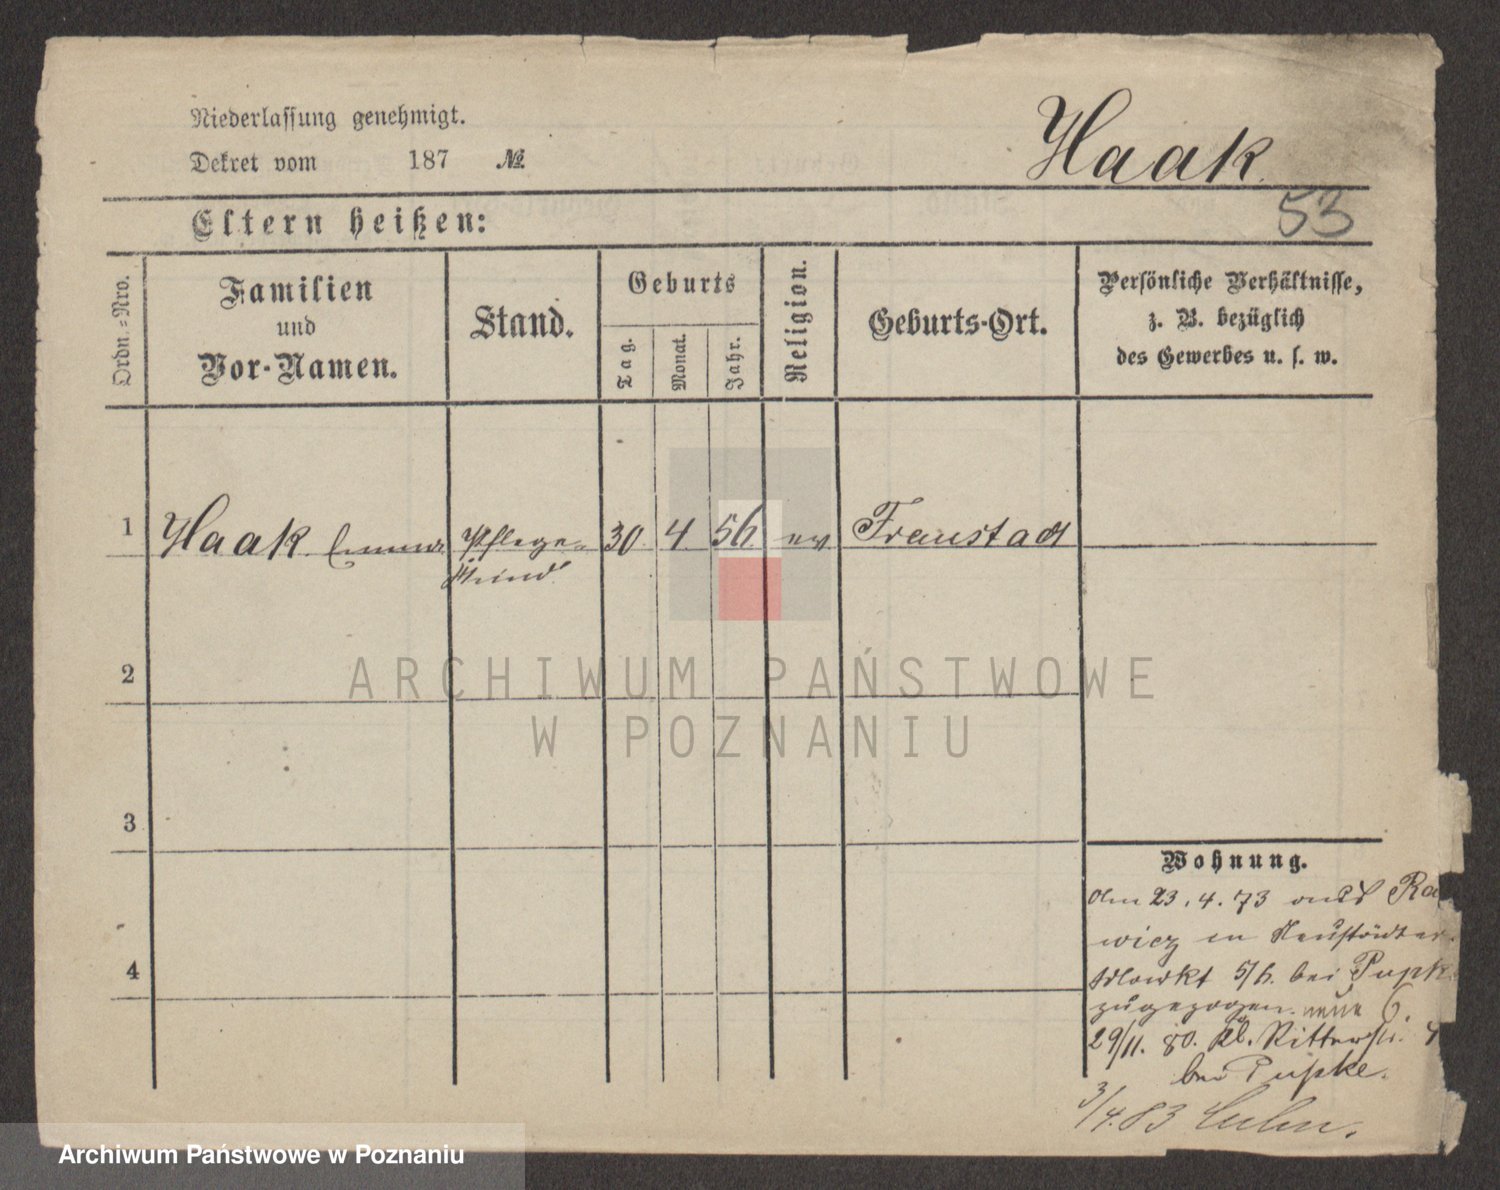 Niederlassung genehmigt.
Dekret vom 187 №
Haak.
53
Eltern heißen:
Ordn.-Nro.
Familien
und
Vor-Namen.
Stand.
Geburts
Tag.
Monat.
Jahr.
Religion.
Geburts-Ort.
Persönliche Verhältnisse,
z. B. bezüglich
des Gewerbes u. s. w.
1 Haak Emma Pflege- 30 4 56 ev Fraustadt
kind
2
3
4
ARCHIWUM PAŃSTWOWE
W POZNANIU
Wohnung.
Am 23.4.73 aus Ra
wicz in Neustädter
Markt 5/6. bei Pupk
zugezogen. neue 6.
29/11. 80. kl. Ritterstr. 4
bei Pupke.
3/4.83
Archiwum Państwowe w Poznaniu